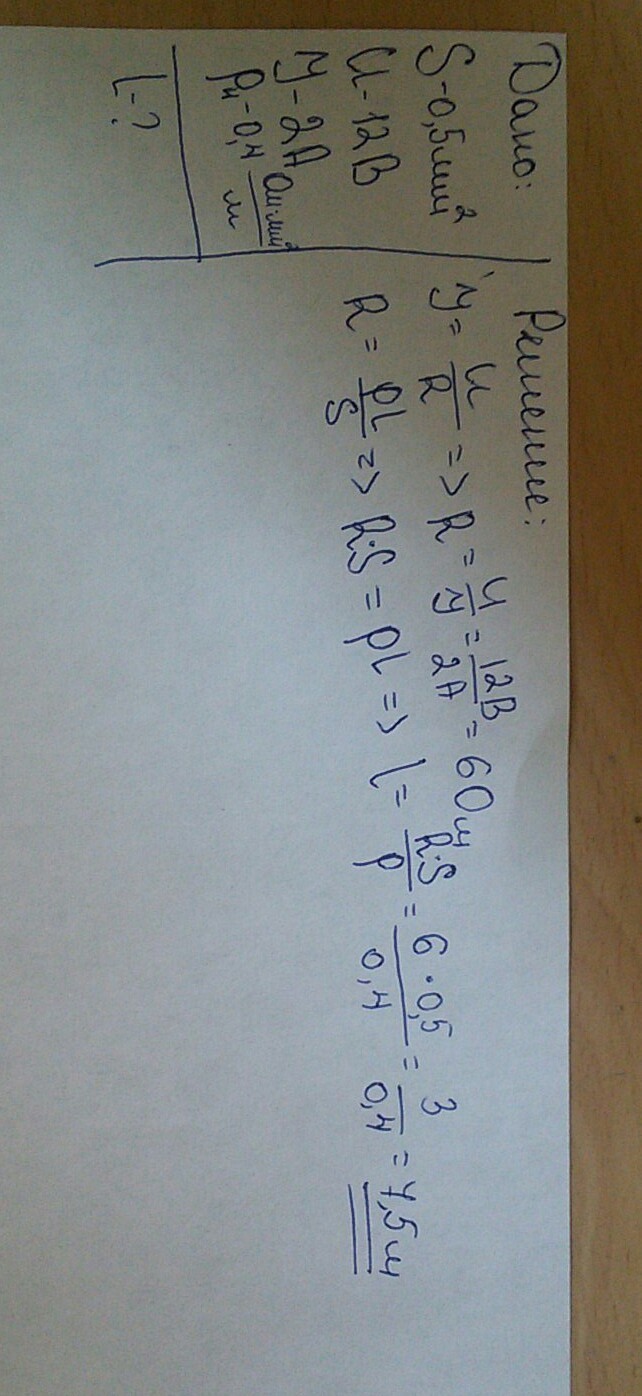 Дано:
S-0,5мм²
U-12В
У-2А
ρн-0,4 Ом·мм²/м
l-?
Решение:
У = U/R => R = U/У = 12В/2А = 6Ом
R = ρl/S => R·S = ρl => l = R·S/ρ = 6·0,5/0,4 = 3/0,4 = 7,5м